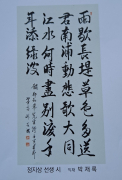 雨歇長堤草色多送
君南浦動悲歌大同
江水何時盡別淚年
年添綠波
정지상 선생 시